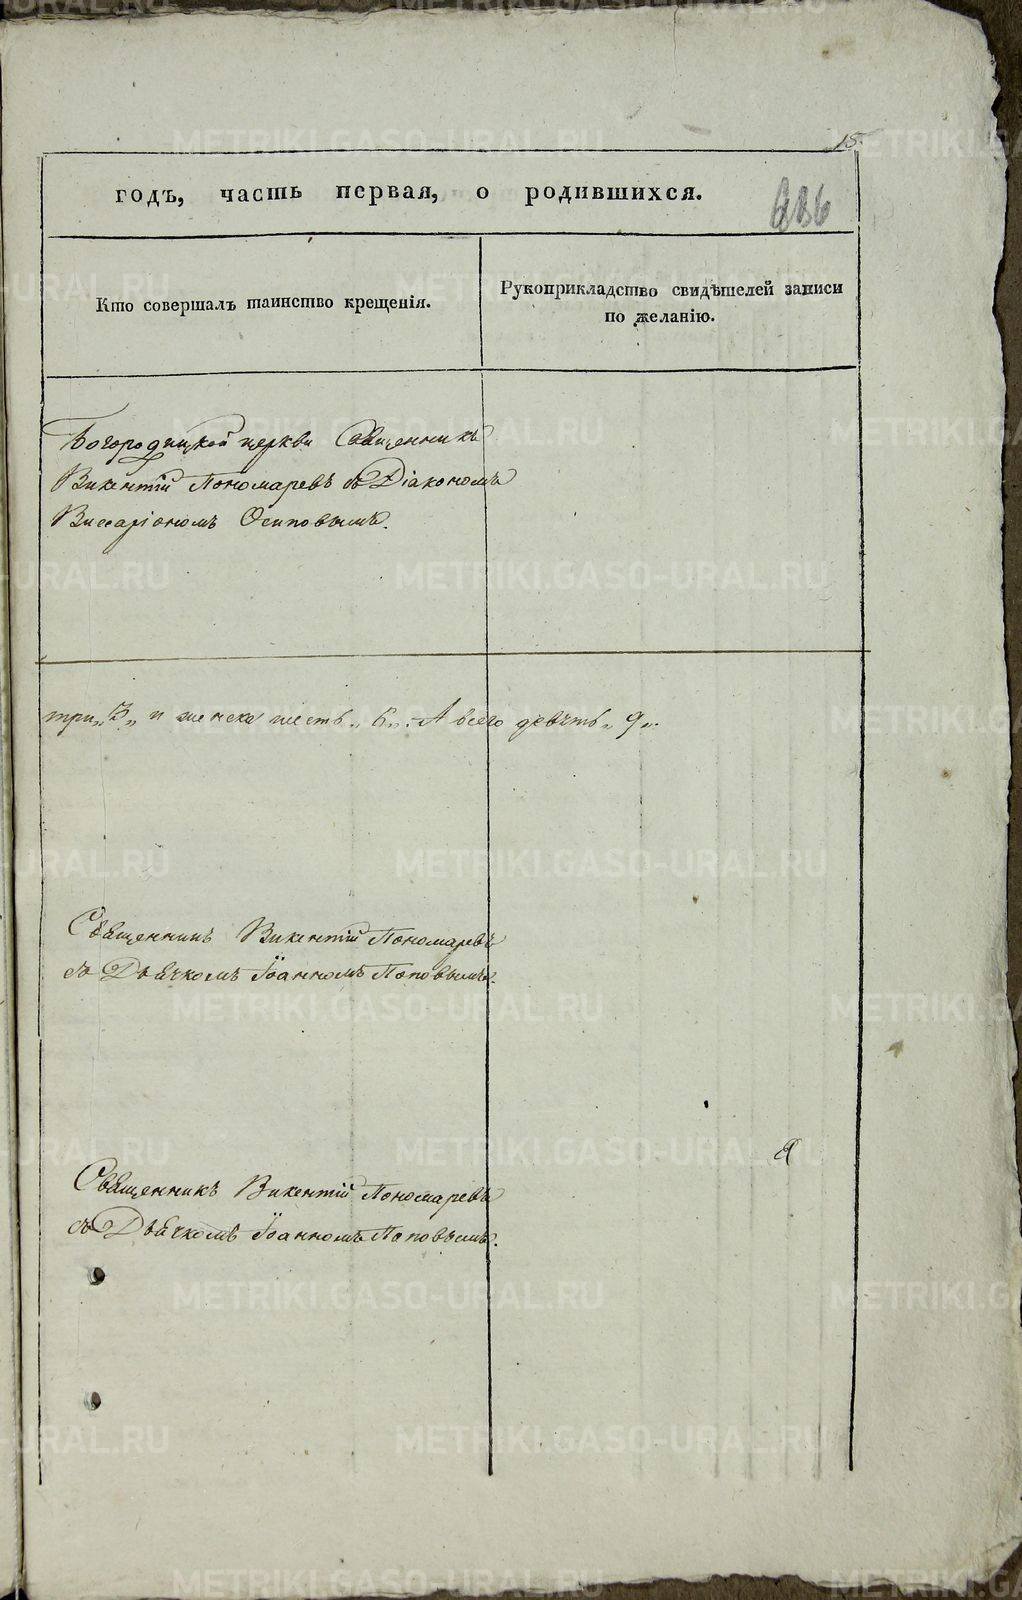 15
годъ, часть первая, о родившихся.
Кто совершалъ таинство крещенія.
Рукоприкладство свидѣтелей записи
по желанію.
Богородицкой церкви Священникъ
Викентій Пономаревъ съ Діакономъ
Виссаріономъ Осиповымъ.
три „3„ и женска шесть „6„. А всего девять „9„.
Священникъ Викентій Пономаревъ
съ Дьячкомъ Іоанномъ Поповымъ.
Священникъ Викентій Пономаревъ
съ Дьячкомъ Іоанномъ Поповымъ.
METRIKI.GASO-URAL.RU